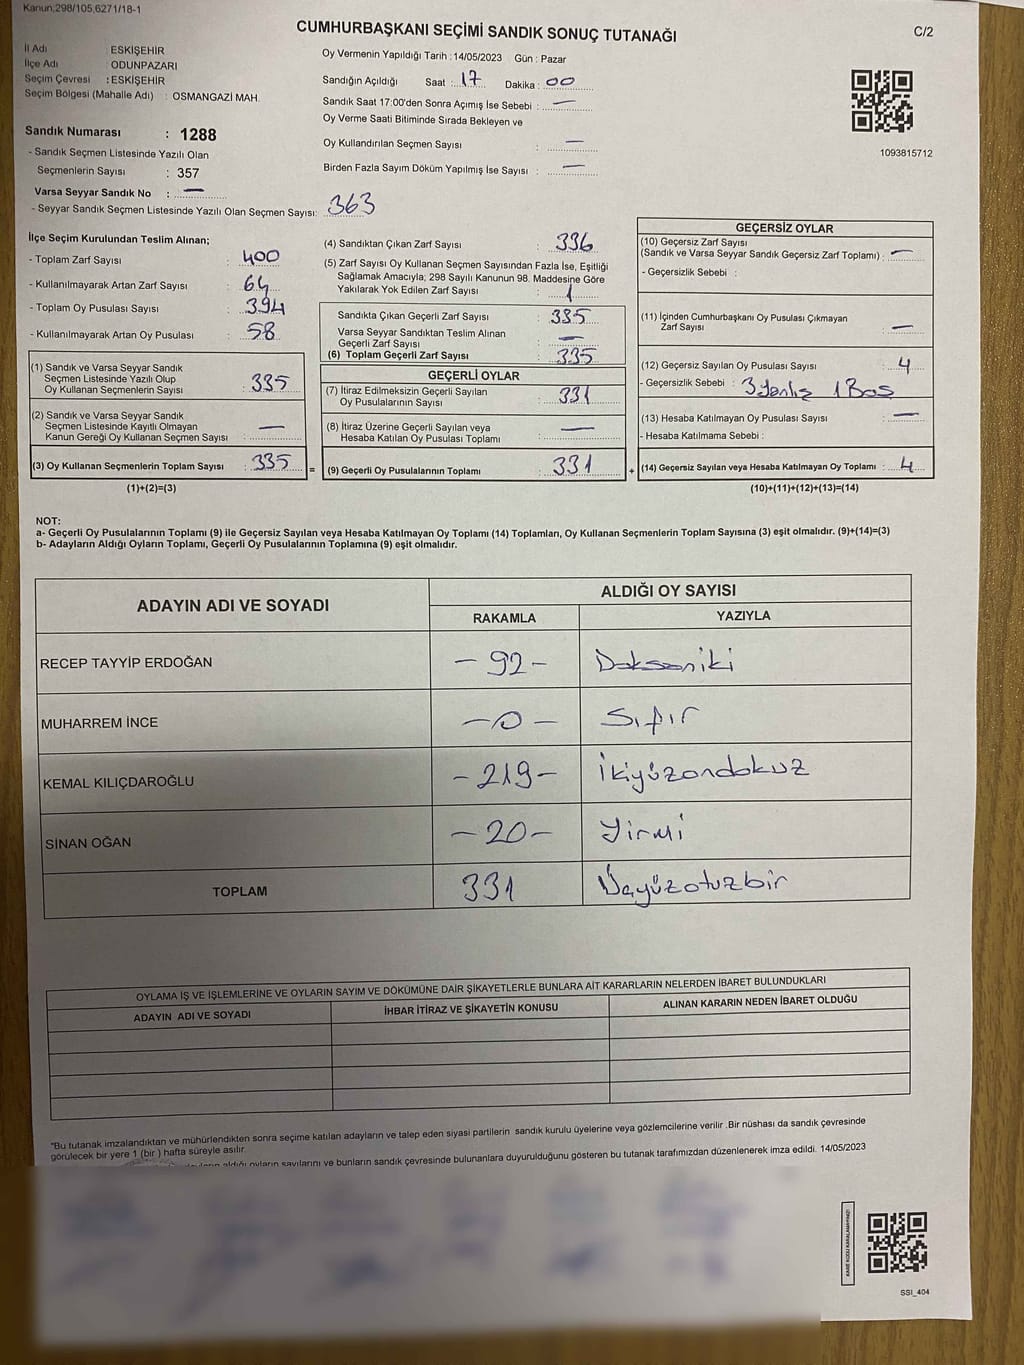 Kanun;298/105,6271/18-1
CUMHURBAŞKANI SEÇİMİ SANDIK SONUÇ TUTANAĞI
C/2
İl Adı : ESKİŞEHİR
İlçe Adı : ODUNPAZARI
Seçim Çevresi : ESKİŞEHİR
Seçim Bölgesi (Mahalle Adı) : OSMANGAZİ MAH.
Sandık Numarası : 1288
- Sandık Seçmen Listesinde Yazılı Olan
Seçmenlerin Sayısı : 357
Varsa Seyyar Sandık No : —
- Seyyar Sandık Seçmen Listesinde Yazılı Olan Seçmen Sayısı: 363
Oy Vermenin Yapıldığı Tarih : 14/05/2023 Gün : Pazar
Sandığın Açıldığı Saat : 17 Dakika : 00
Sandık Saat 17:00'den Sonra Açımış İse Sebebi : —
Oy Verme Saati Bitiminde Sırada Bekleyen ve
Oy Kullandırılan Seçmen Sayısı : —
Birden Fazla Sayım Döküm Yapılmış İse Sayısı : —
1093815712
İlçe Seçim Kurulundan Teslim Alınan;
- Toplam Zarf Sayısı : 400
- Kullanılmayarak Artan Zarf Sayısı : 64
- Toplam Oy Pusulası Sayısı : 394
- Kullanılmayarak Artan Oy Pusulası : 58
(1) Sandık ve Varsa Seyyar Sandık
Seçmen Listesinde Yazılı Olup
Oy Kullanan Seçmenlerin Sayısı : 335
(2) Sandık ve Varsa Seyyar Sandık
Seçmen Listesinde Kayıtlı Olmayan
Kanun Gereği Oy Kullanan Seçmen Sayısı : —
(3) Oy Kullanan Seçmenlerin Toplam Sayısı : 335
(1)+(2)=(3)
(4) Sandıktan Çıkan Zarf Sayısı : 336
(5) Zarf Sayısı Oy Kullanan Seçmen Sayısından Fazla İse, Eşitliği
Sağlamak Amacıyla; 298 Sayılı Kanunun 98. Maddesine Göre
Yakılarak Yok Edilen Zarf Sayısı : 1
Sandıkta Çıkan Geçerli Zarf Sayısı : 335
Varsa Seyyar Sandıktan Teslim Alınan
Geçerli Zarf Sayısı : —
(6) Toplam Geçerli Zarf Sayısı : 335
GEÇERLİ OYLAR
(7) İtiraz Edilmeksizin Geçerli Sayılan
Oy Pusulalarının Sayısı : 331
(8) İtiraz Üzerine Geçerli Sayılan veya
Hesaba Katılan Oy Pusulası Toplamı : —
= (9) Geçerli Oy Pusulalarının Toplamı : 331 +
GEÇERSİZ OYLAR
(10) Geçersiz Zarf Sayısı
(Sandık ve Varsa Seyyar Sandık Geçersiz Zarf Toplamı) : —
- Geçersizlik Sebebi :
(11) İçinden Cumhurbaşkanı Oy Pusulası Çıkmayan
Zarf Sayısı : —
(12) Geçersiz Sayılan Oy Pusulası Sayısı : 4
- Geçersizlik Sebebi : 3 Yanlız 1 Bos
(13) Hesaba Katılmayan Oy Pusulası Sayısı : —
- Hesaba Katılmama Sebebi :
(14) Geçersiz Sayılan veya Hesaba Katılmayan Oy Toplamı : 4
(10)+(11)+(12)+(13)=(14)
NOT:
a- Geçerli Oy Pusulalarının Toplamı (9) ile Geçersiz Sayılan veya Hesaba Katılmayan Oy Toplamı (14) Toplamları, Oy Kullanan Seçmenlerin Toplam Sayısına (3) eşit olmalıdır. (9)+(14)=(3)
b- Adayların Aldığı Oyların Toplamı, Geçerli Oy Pusulalarının Toplamına (9) eşit olmalıdır.
ADAYIN ADI VE SOYADI
ALDIĞI OY SAYISI
RAKAMLA YAZIYLA
RECEP TAYYİP ERDOĞAN – 92 – Doksaniki
MUHARREM İNCE – 0 – Sıfır
KEMAL KILIÇDAROĞLU – 219 – İkiyüzondokuz
SİNAN OĞAN – 20 – Yirmi
TOPLAM 331 Üçyüzotuzbir
OYLAMA İŞ VE İŞLEMLERİNE VE OYLARIN SAYIM VE DÖKÜMÜNE DAİR ŞİKAYETLERLE BUNLARA AİT KARARLARIN NELERDEN İBARET BULUNDUKLARI
ADAYIN ADI VE SOYADI İHBAR İTİRAZ VE ŞİKAYETİN KONUSU ALINAN KARARIN NEDEN İBARET OLDUĞU
"Bu tutanak imzalandıktan ve mühürlendikten sonra seçime katılan adayların ve talep eden siyasi partilerin sandık kurulu üyelerine veya gözlemcilerine verilir .Bir nüshası da sandık çevresinde
görülecek bir yere 1 (bir ) hafta süreyle asılır.
aldığı oyların sayılarını ve bunların sandık çevresinde bulunanlara duyurulduğunu gösteren bu tutanak tarafımızdan düzenlenerek imza edildi. 14/05/2023
KARE KODU KARALAMAYINIZ!
SSI_404